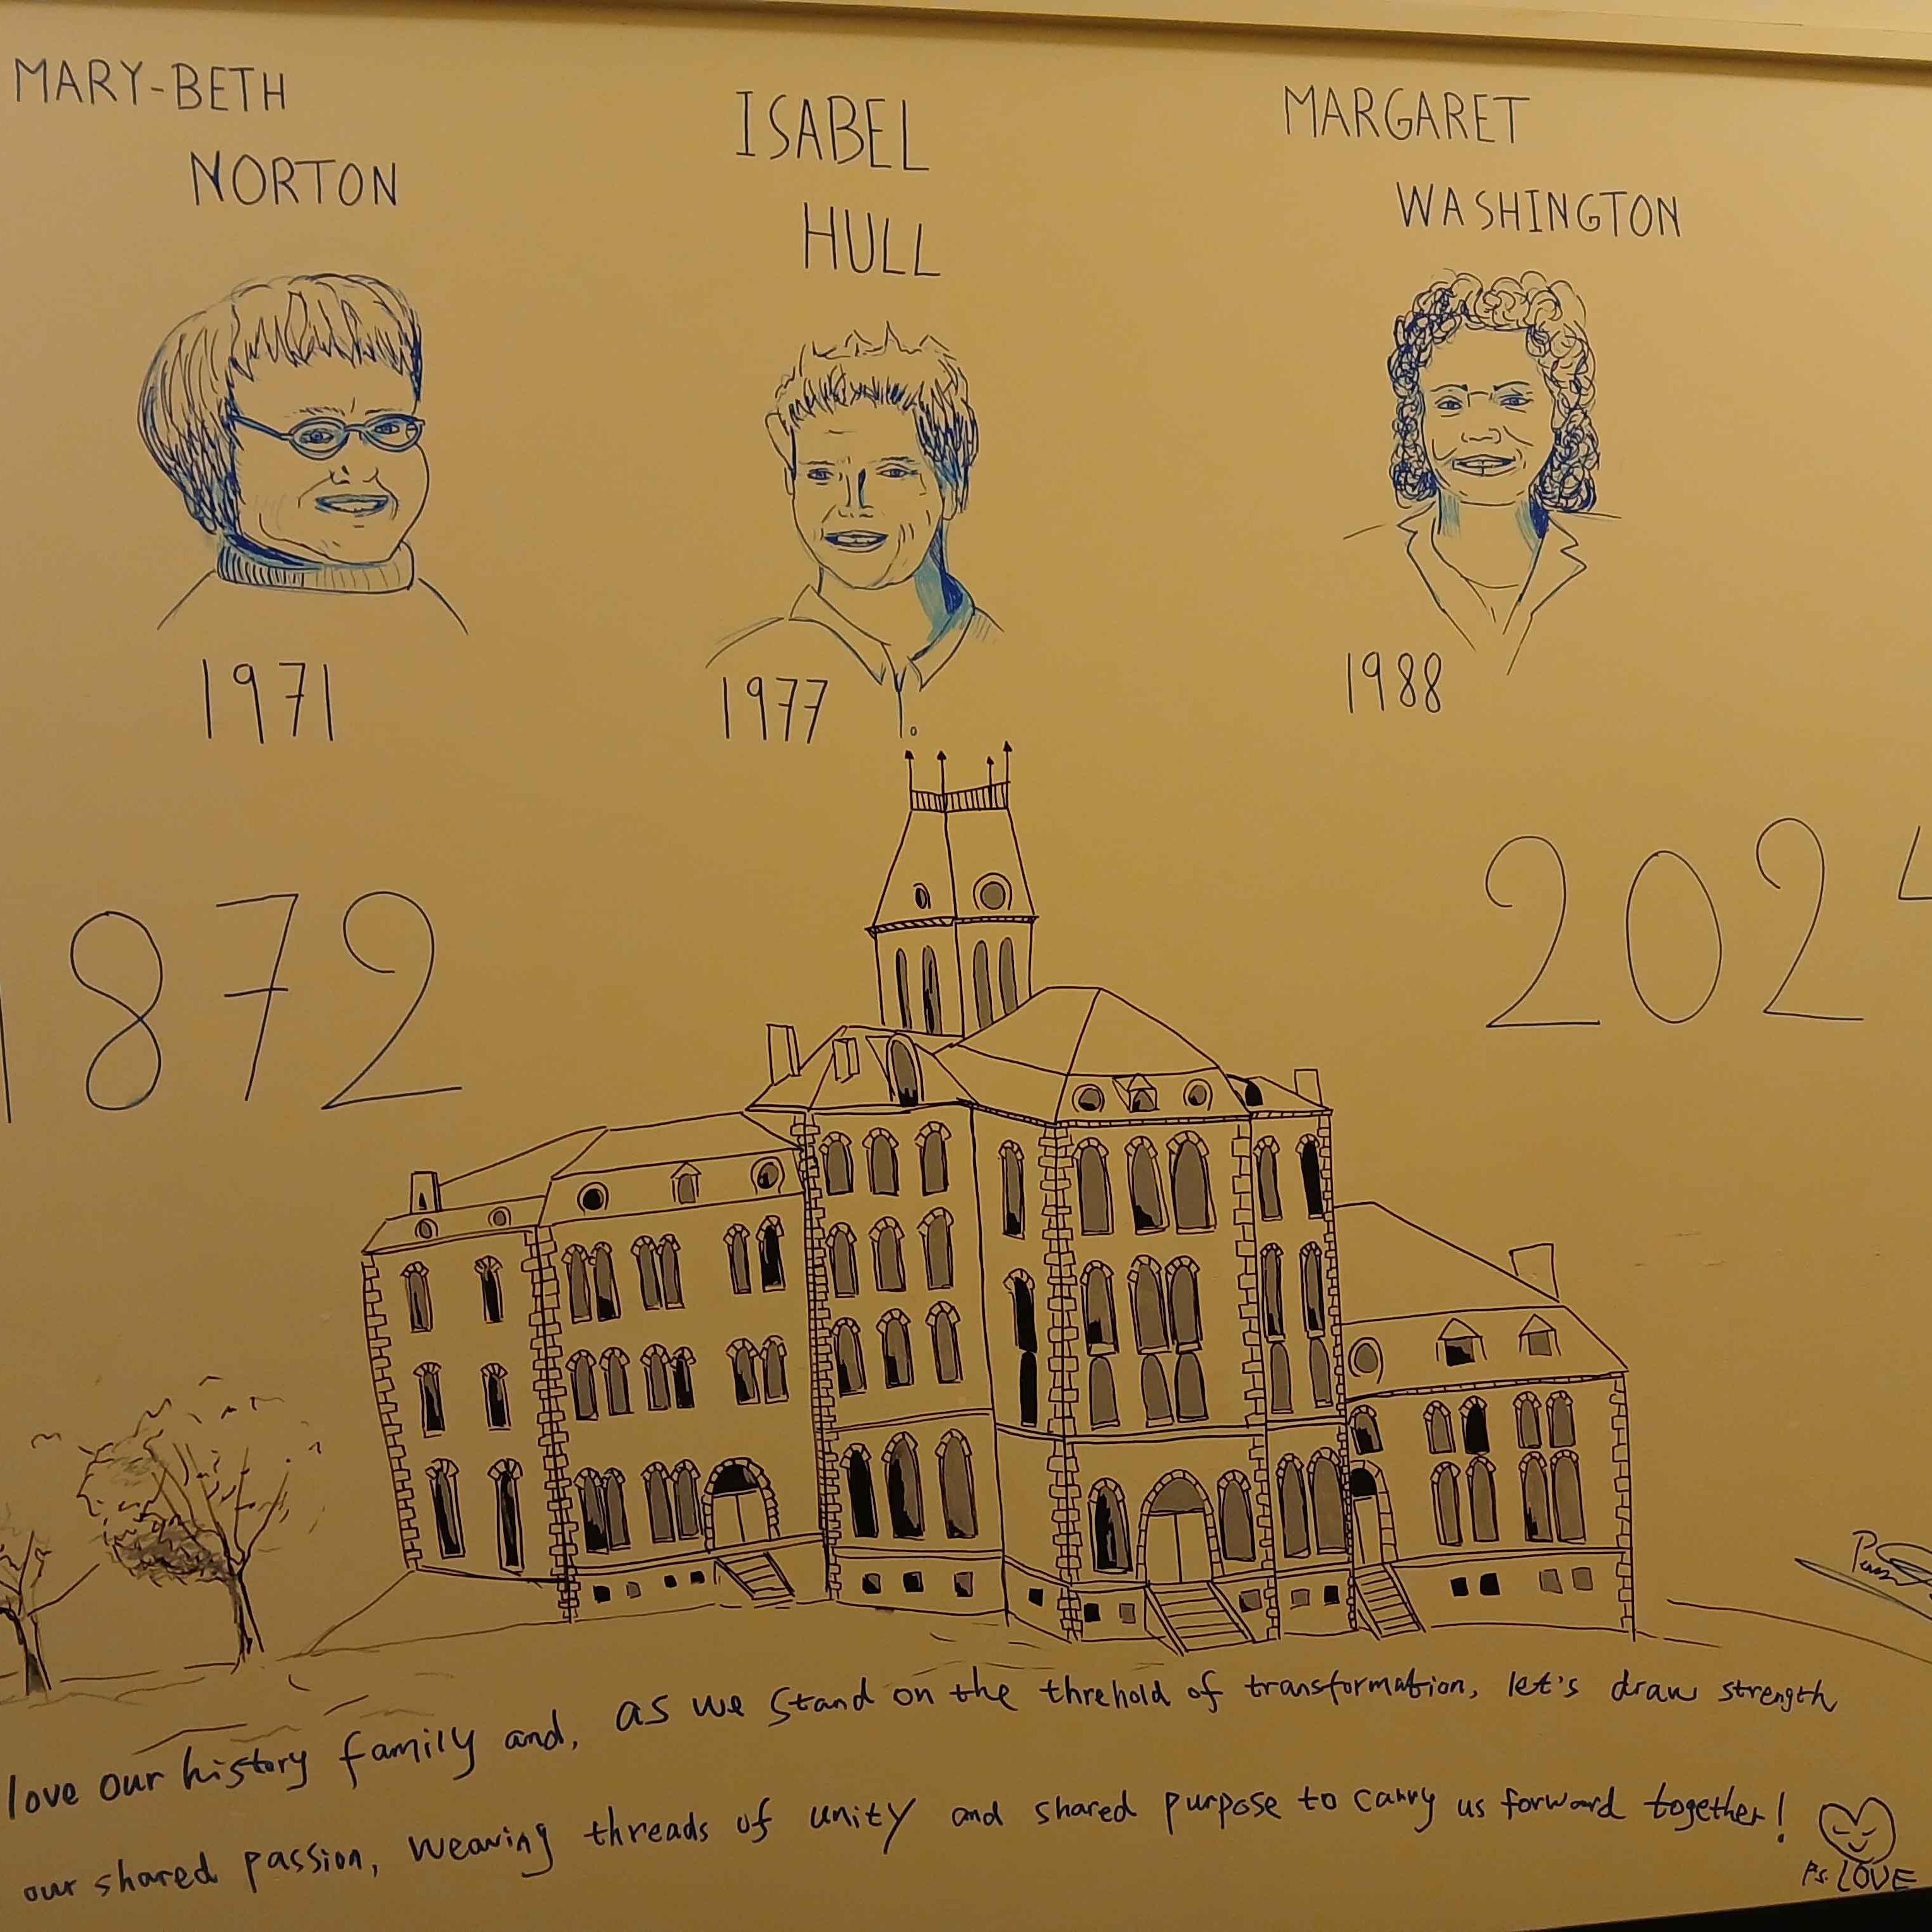 MARY-BETH
NORTON
1971
ISABEL
HULL
1977
MARGARET
WASHINGTON
1988
1872
202
love our history family and, as we stand on the threhold of transformation, let's draw strength
our shared passion, weaving threads of unity and shared purpose to carry us forward together!
P.s. LOVE